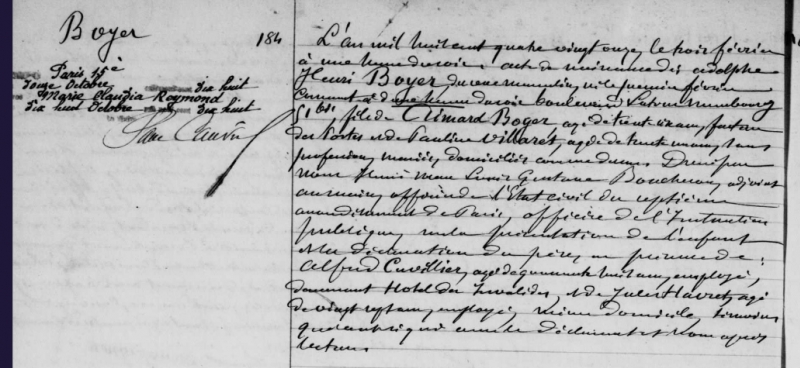 Boyer
184
Paris 15è
douze Octobre dix huit
Marie Claudia Reymond
dix huit Octobre dix huit
L'an mil huit cent quatre vingt onze, le trois février
à une heure du soir; acte de naissance de Adolphe
Henri Boyer, du sexe masculin, né le premier février
courant à une heure du soir boulevard Latour Maubourg
51 bis, fils de Climard Boyer, âgé de trente six ans, facteur
des Postes et de Pauline Villaret, âgée de trente un ans, sans
profession, mariés, domiciliés comme dessus. Dressé par
nous Louis Gustave Boucheron, adjoint
au maire, officier de l'État civil du septième
arrondissement de Paris, officier de l'Instruction
publique, sur la présentation de l'enfant
et la déclaration du père, en présence de:
Alfred Cuvillier, âgé de quarante huit ans, employé,
demeurant Hotel des Invalides, et de Jules Havret, âgé
de vingt sept ans, employé, même domicile, témoins
qui ont signé avec le déclarant et nous après
lecture.